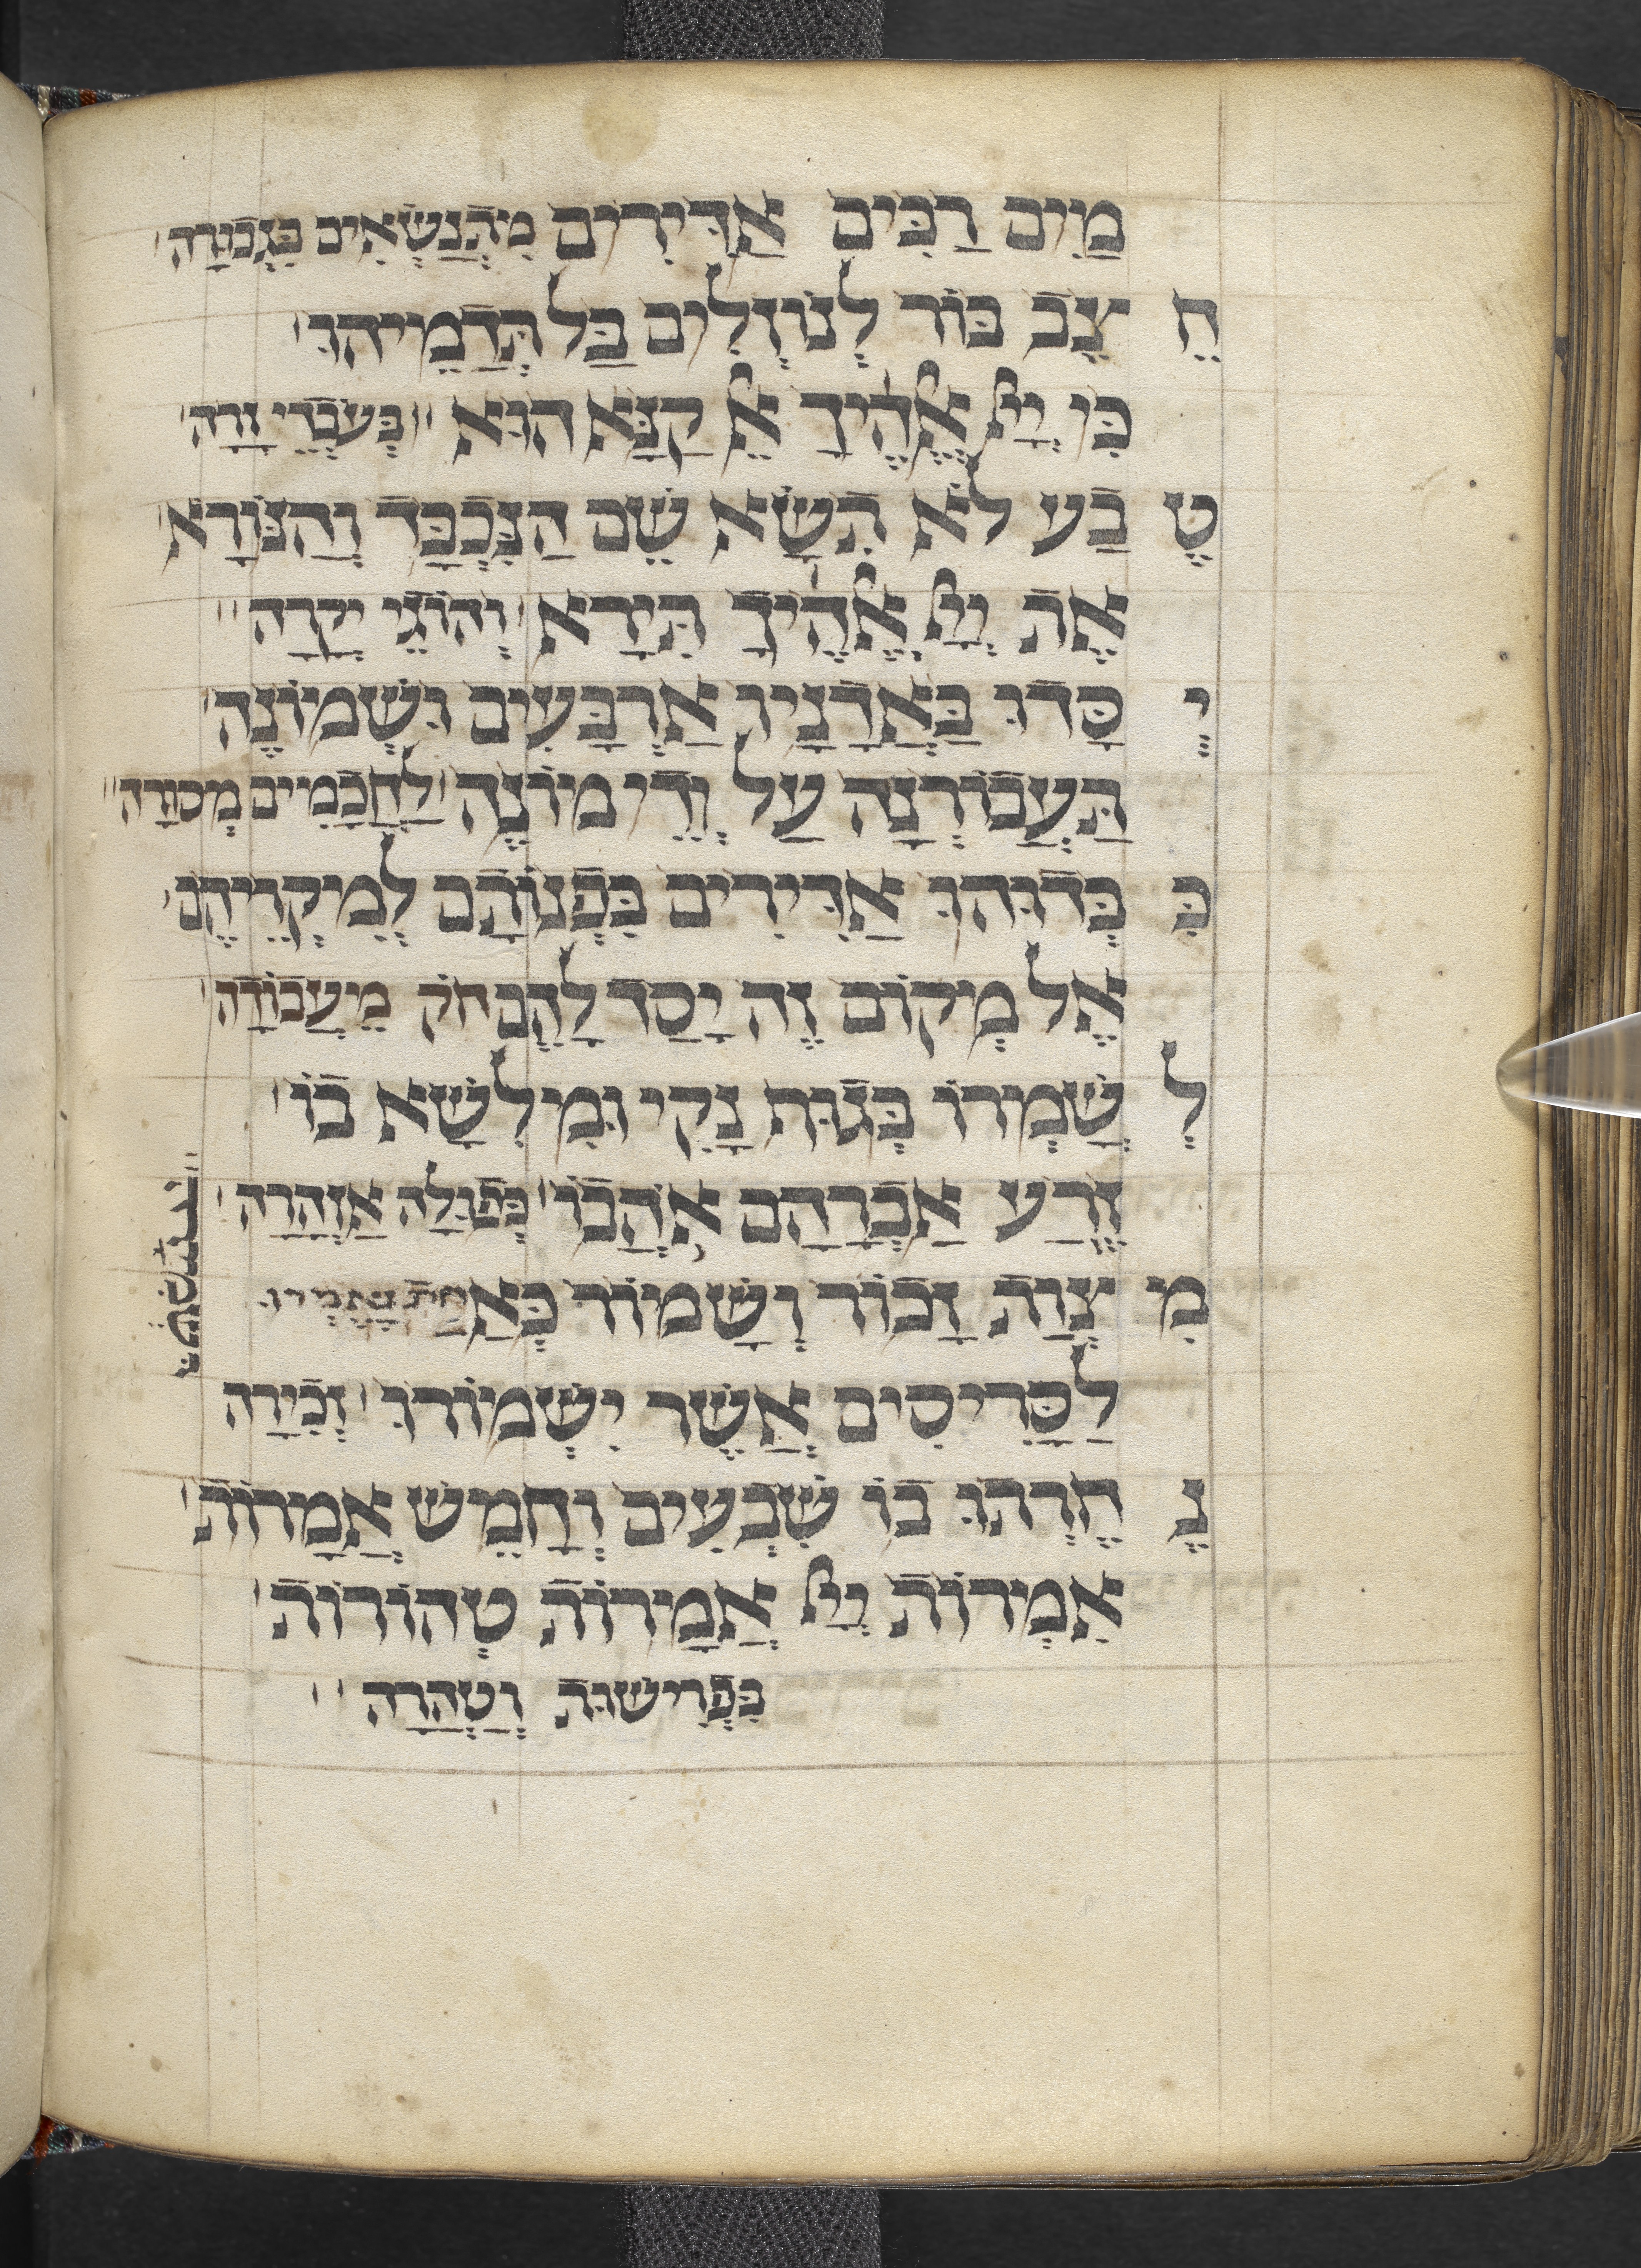 מַיִם רַבִּים אַדִּירִים מִתְנַשְּׂאִים בִּגְבוּרָה
חֲ צֹב בּוֹר לְנוֹזְלִים בַּל תְּדַמֵּיהוּ
כִּי יְיָ אֱלֹהֶיךָ אֵל קַנָּא הוּא בְּעֹבְדֵי זָרָה
טֶ בַע לֹא תִשָּׂא שֵׁם הַנִּכְבָּד וְהַנּוֹרָא
אֶת יְיָ אֱלֹהֶיךָ תִּירָא וְהוֹגֵי יְקָרָה
יְ סָדוֹ בַּאֲדָנָיו אַרְבָּעִים וּשְׁמוֹנֶה
תַּעֲבוֹרְנָה עַל יְדֵי מוֹנֶה לַחֲכָמִים מְסוּרָה
כִּ בְּדוּהוּ אַדִּירִים כִּפְצוֹתָם לְמִיקְרֵיהֶם
אֶל מְקוֹם זֶה יָסַד לָהֶם חֹק מֵעֲבוֹדָה
לְ שָׁמְרוֹ כְּצִוָּה נָקִי וּמִלִּשָּׂא בוֹ
זֶרַע אַבְרָהָם אֹהֲבוֹ כְּפוּלָה אַזְהָרָה
מִ צְוַת זָכוֹר וְשָׁמוֹר כְּאַחַת נֶאֶמְרוּ
לַסָּרִיסִים אֲשֶׁר יִשְׁמוֹרוּ זְכִירָה
נֶ חְרְתוּ בוֹ שִׁבְעִים וְחָמֵשׁ אֲמָרוֹת
אִמְרוֹת יְיָ אֲמָרוֹת טְהוֹרוֹת
כִּפְרִישׁוּת וְטָהֳרָה